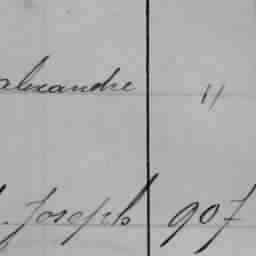 alexandre "
. Joseph 907